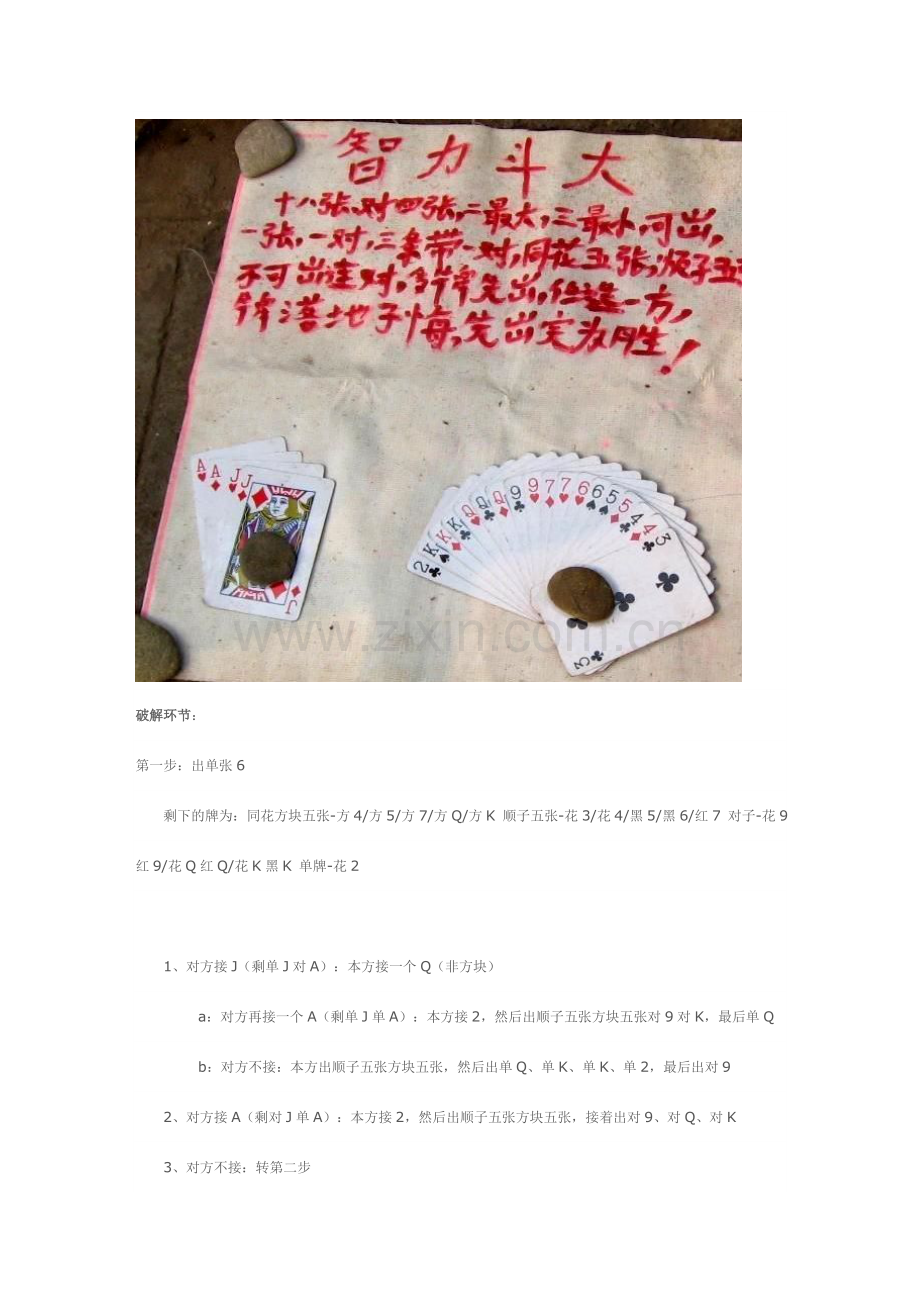 智力斗大
十八张对四张,二最大,三最小,可出,
一张,一对,三条带一对,同花五张,顺子五
不可出连对,多牌先出,任选一方,
牌落地子悔,先出完为胜!
A A J J
J
2 K K K Q Q Q 9 9 7 7 6 6 5 5 4 4 3
3
www.zixin.com.cn
破解环节:
第一步:出单张6
剩下的牌为:同花方块五张-方4/方5/方7/方Q/方K 顺子五张-花3/花4/黑5/黑6/红7 对子-花9
红9/花Q红Q/花K黑K 单牌-花2
1、对方接J(剩单J对A):本方接一个Q(非方块)
a:对方再接一个A(剩单J单A):本方接2,然后出顺子五张方块五张对9对K,最后单Q
b:对方不接:本方出顺子五张方块五张,然后出单Q、单K、单K、单2,最后出对9
2、对方接A(剩对J单A):本方接2,然后出顺子五张方块五张,接着出对9、对Q、对K
3、对方不接:转第二步